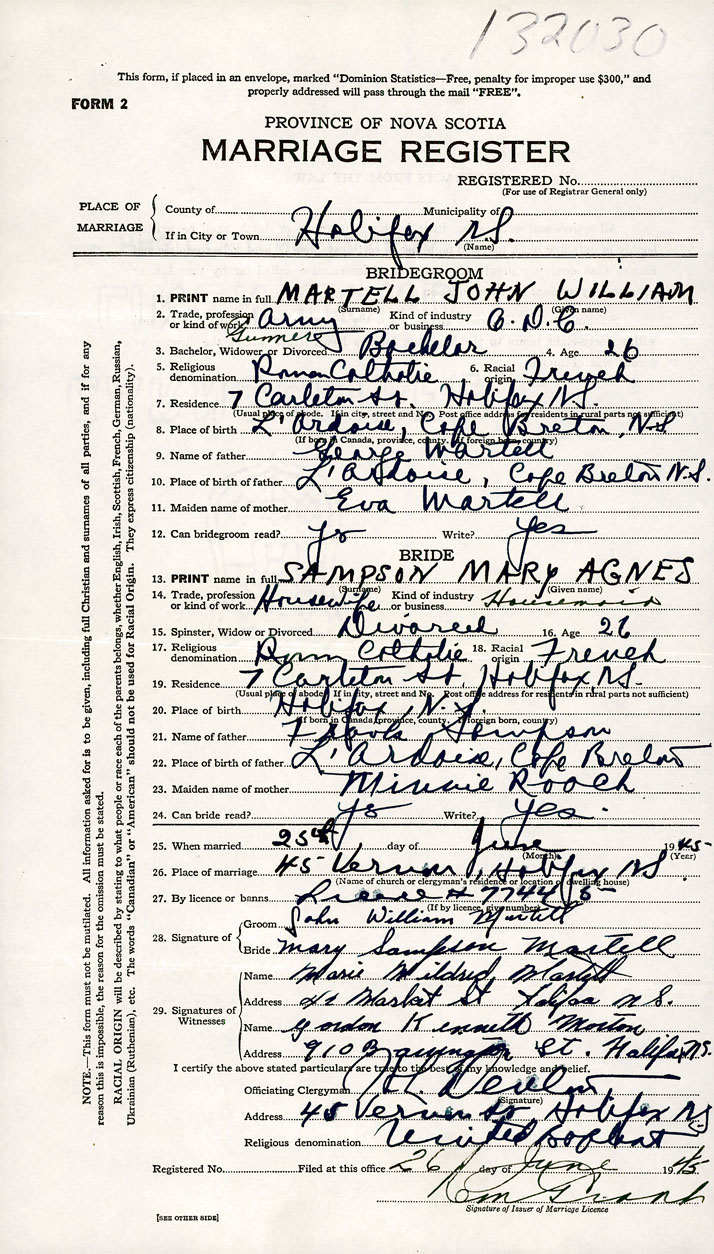 132030
This form, if placed in an envelope, marked "Dominion Statistics—Free, penalty for improper use $300," and
properly addressed will pass through the mail "FREE".
FORM 2
PROVINCE OF NOVA SCOTIA
MARRIAGE REGISTER
REGISTERED No.
(For use of Registrar General only)
PLACE OF MARRIAGE
County of Municipality of
If in City or Town Halifax N.S.
(Name)
BRIDEGROOM
1. PRINT name in full MARTELL JOHN WILLIAM
(Surname) (Given name)
2. Trade, profession or kind of work Army Gunner Kind of industry or business
3. Bachelor, Widower or Divorced Bachelor 4. Age 26
5. Religious denomination Roman Catholic 6. Racial origin French
7. Residence 7 Carleton St. Halifax N.S.
(Usual place of abode. If in city, street and No. Post office address for residents in rural parts not sufficient)
8. Place of birth L'Ardoise, Cape Breton, N.S
(If born in Canada, province, county. If foreign born, country)
9. Name of father George Martell
10. Place of birth of father L'Ardoise, Cape Breton N.S.
11. Maiden name of mother Eva Martell
12. Can bridegroom read? Yes Write? Yes
BRIDE
13. PRINT name in full SAMPSON MARY AGNES
(Surname) (Given name)
14. Trade, profession or kind of work Housewife Kind of industry or business Housemaid
15. Spinster, Widow or Divorced Divorced 16. Age 26
17. Religious denomination Roman Catholic 18. Racial origin French
19. Residence 7 Carleton St. Halifax, N.S.
(Usual place of abode. If in city, street and No. Post office address for residents in rural parts not sufficient)
20. Place of birth Halifax, N.S.
(If born in Canada, province, county. If foreign born, country)
21. Name of father Sampson
22. Place of birth of father L'Ardoise, Cape Breton
23. Maiden name of mother Minnie Roach
24. Can bride read? Yes Write? Yes.
25. When married 25th day of June 1945
(Month) (Year)
26. Place of marriage 45 Vernon, Halifax N.S.
(Name of church or clergyman's residence or location of dwelling house)
27. By licence or banns
(If by licence, give number)
28. Signature of
Groom John William Martell
Bride Mary Sampson Martell
29. Signatures of Witnesses
Name Marie Mildred Martell
Address Market St Halifax N.S.
Name Gordon Kenneth Morton
Address St. Halifax, N.S.
I certify the above stated particulars are true to the best of my knowledge and belief.
Officiating Clergyman
(Signature)
Address 45 Vernon St, Halifax N.S.
Religious denomination United Baptist
Registered No. Filed at this office 26 day of June 1945
Grant
Signature of Issuer of Marriage Licence
[SEE OTHER SIDE]
NOTE.—This form must not be mutilated. All information asked for is to be given, including full Christian and surnames of all parties, and if for any
reason this is impossible, the reason for the omission must be stated.
RACIAL ORIGIN will be described by stating to what people or race each of the parents belongs, whether English, Irish, Scottish, French, German, Russian,
Ukrainian (Ruthenian), etc. The words "Canadian" or "American" should not be used for Racial Origin. They express citizenship (nationality).